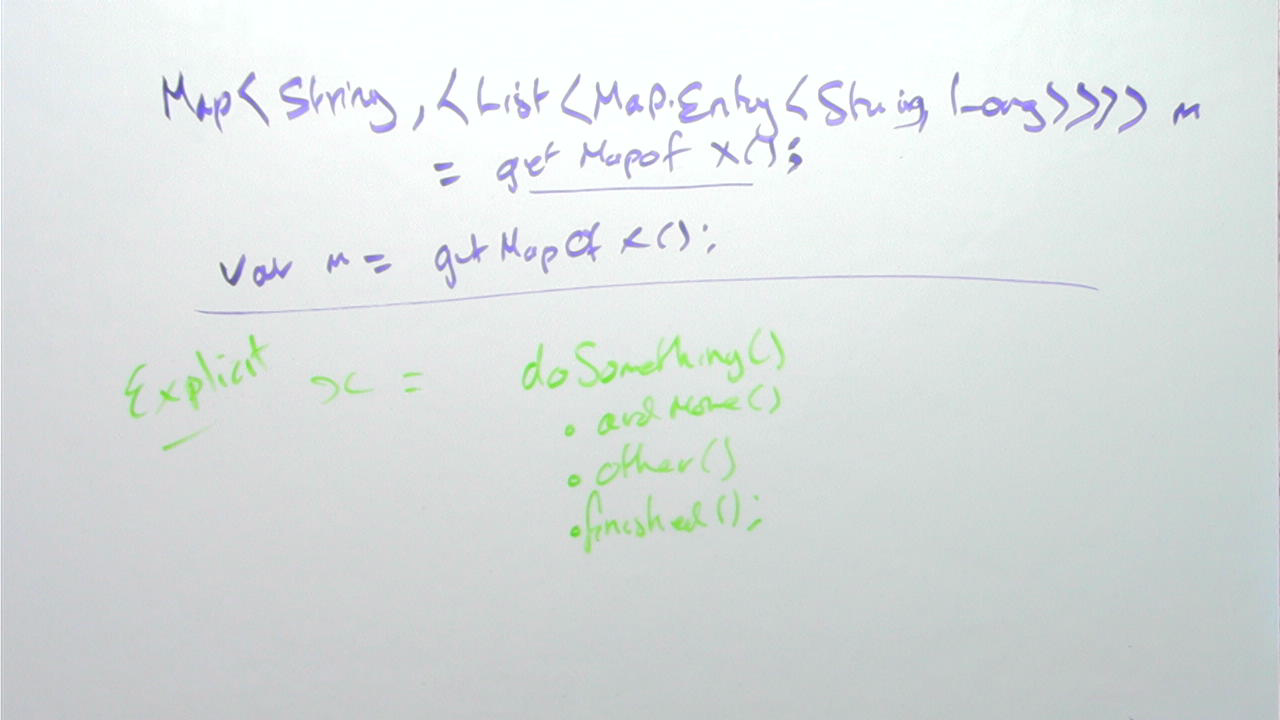 Map< String ,< List <Map.Entry <String, Long>>>> m
= get Mapof X();
var m = getMapOf X();
Explicit x = doSomething()
. andMore()
. other()
.finished();